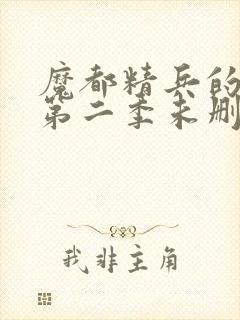 魔都精兵的
第二季未删
我非主角